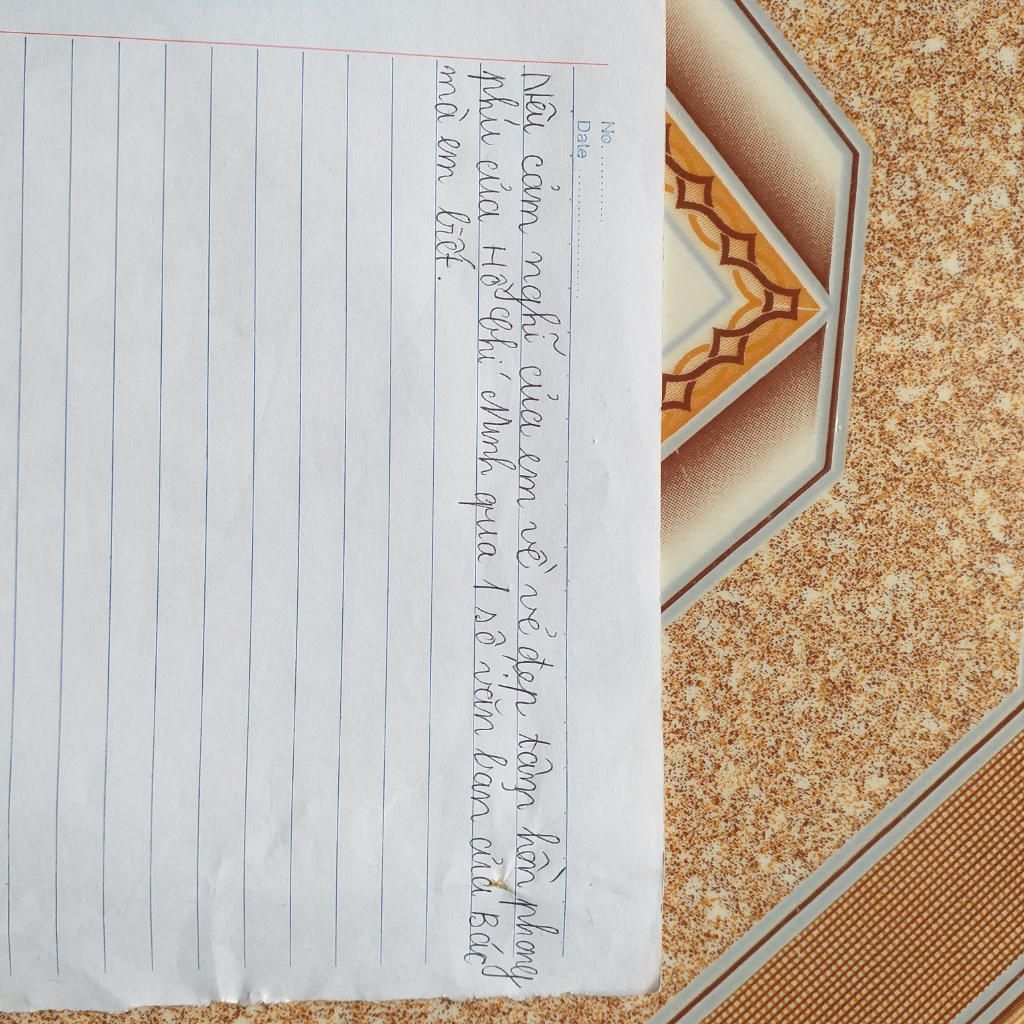 No. ............
Date ......................
Nêu cảm nghĩ của em về vẻ đẹp tâm hồn phong
phú của Hồ Chí Minh qua 1 số văn bản của Bác
mà em biết.